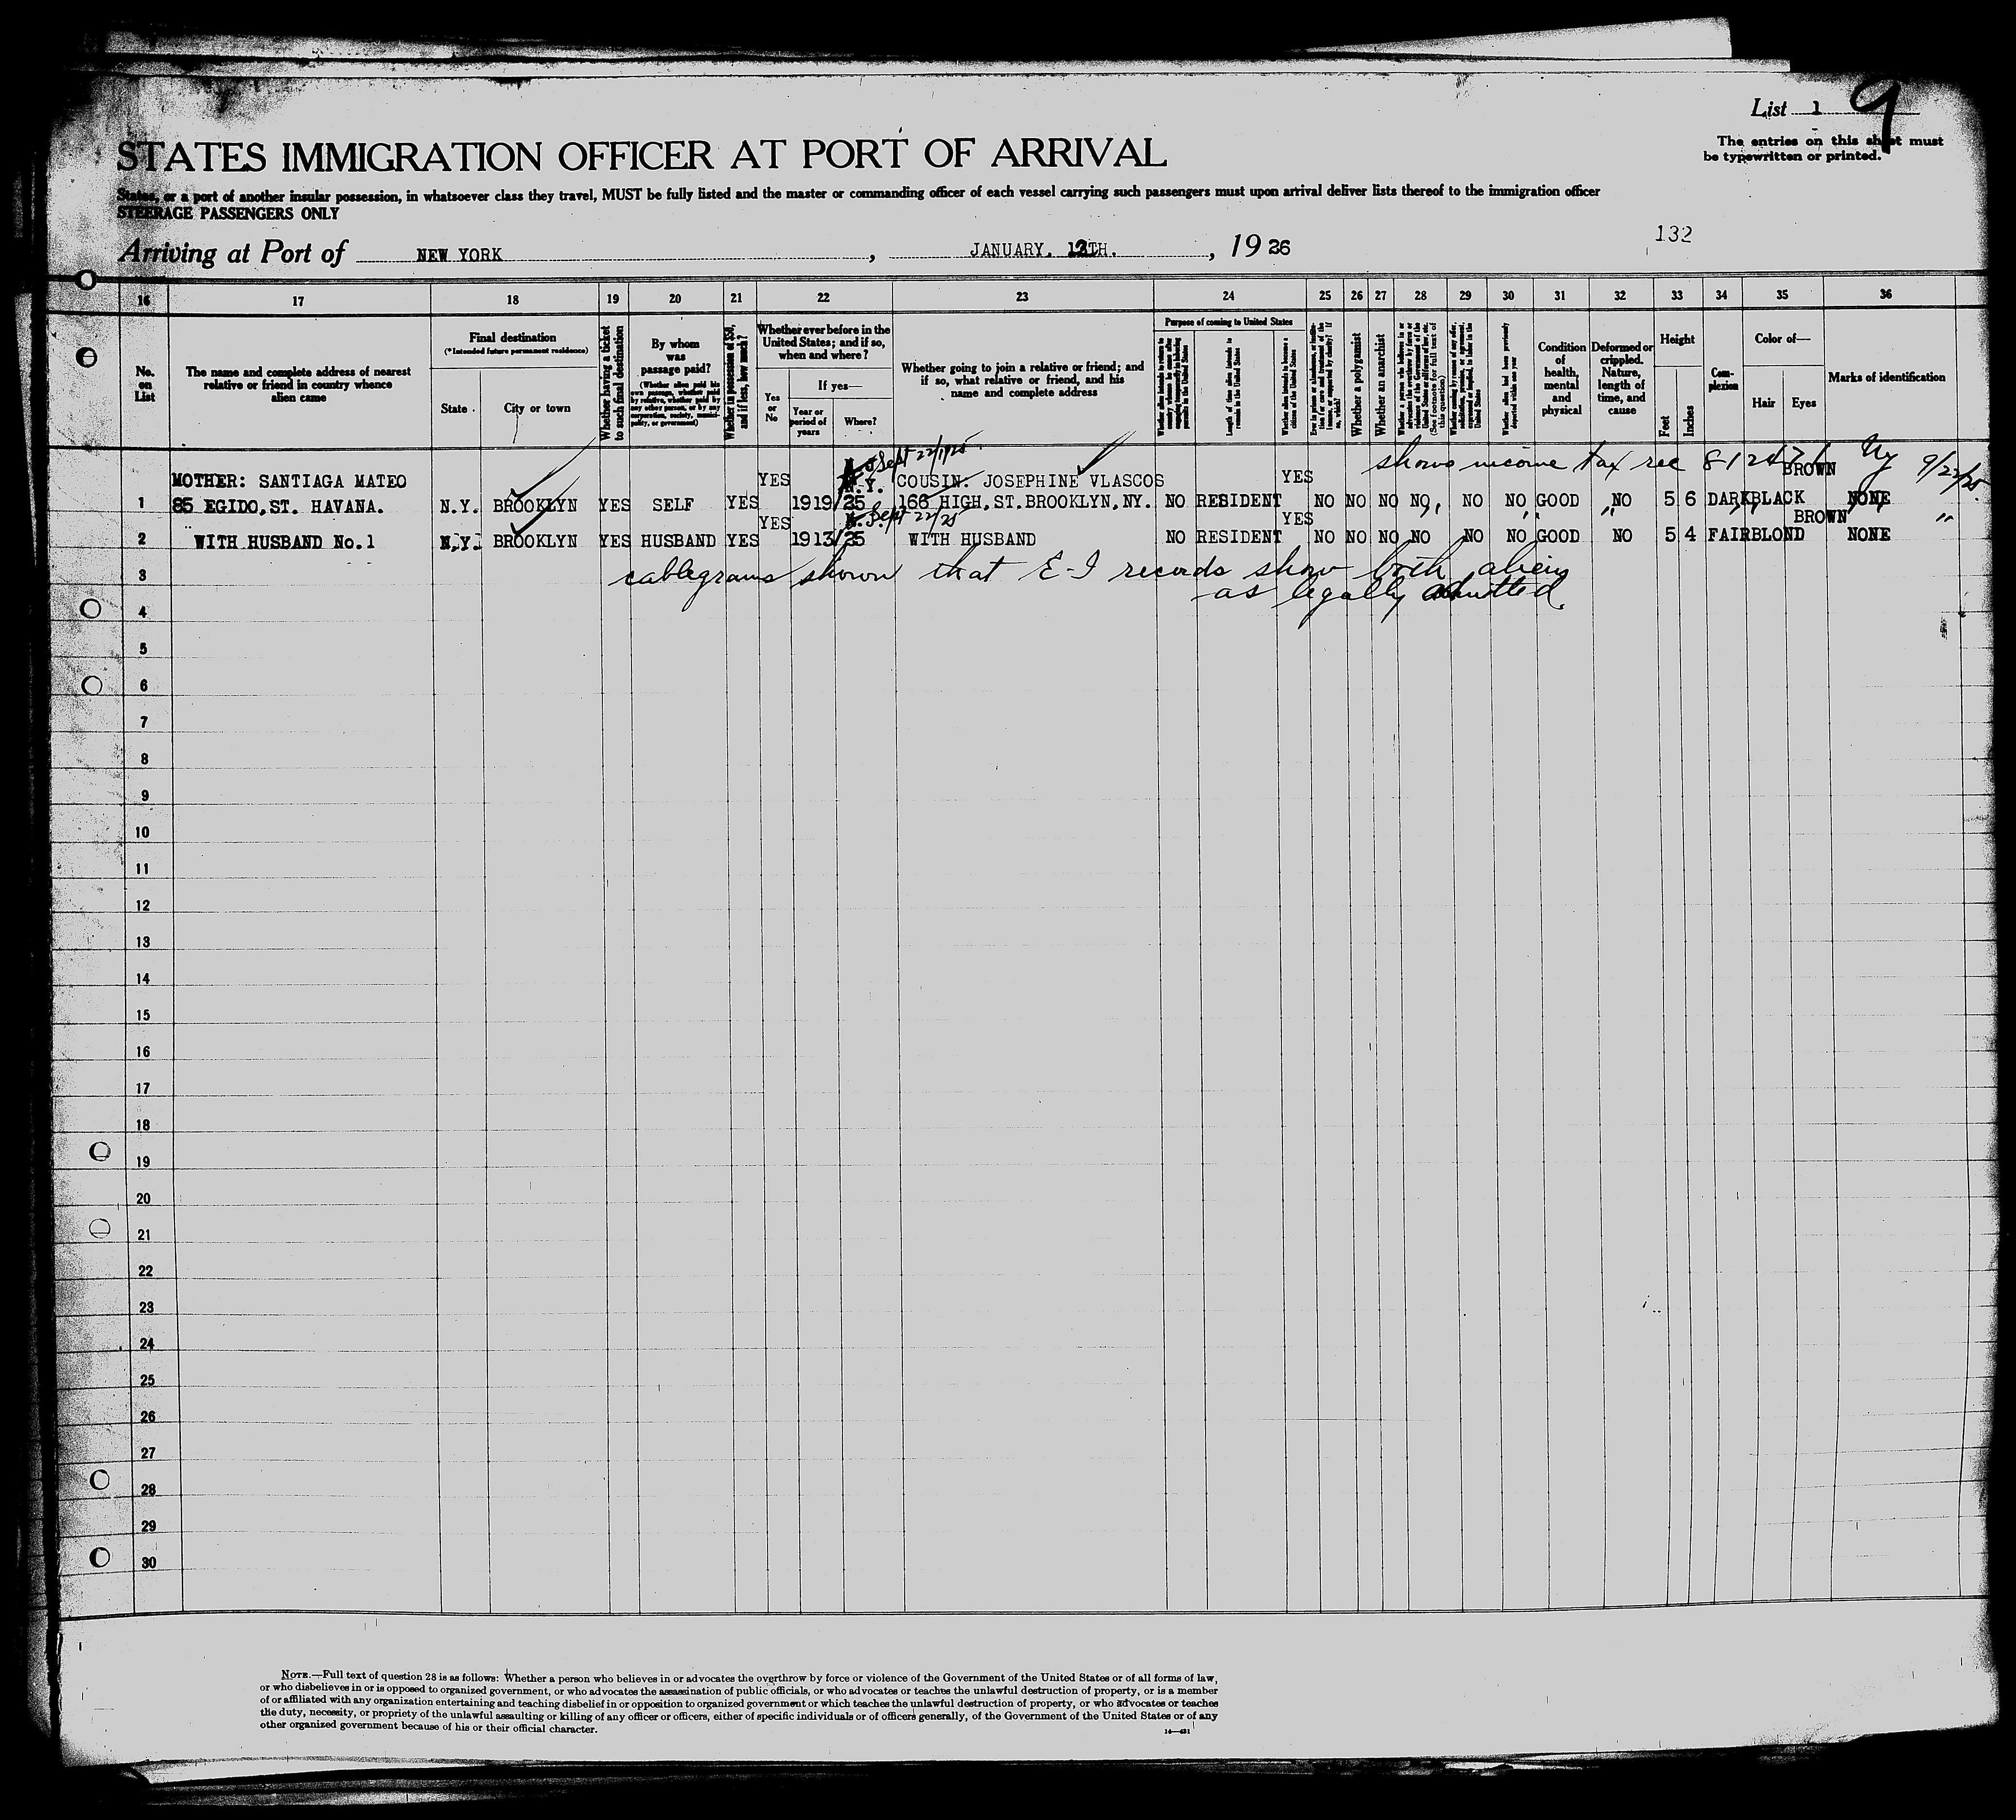 List 1 9
The entries on this sheet must
be typewritten or printed.
STATES IMMIGRATION OFFICER AT PORT OF ARRIVAL
States, or a port of another insular possession, in whatsoever class they travel, MUST be fully listed and the master or commanding officer of each vessel carrying such passengers must upon arrival deliver lists thereof to the immigration officer
STEERAGE PASSENGERS ONLY
132
Arriving at Port of NEW YORK, JANUARY. 12TH., 19 26
16 17 18 19 20 21 22 23 24 25 26 27 28 29 30 31 32 33 34 35 36
No. on List
The name and complete address of nearest relative or friend in country whence alien came
Final destination
(*Intended future permanent residence)
State
City or town
Whether having a ticket to such final destination
By whom was passage paid?
(Whether alien paid his own passage, whether paid by relative, whether paid by any other person, or by any corporation, society, municipality, or government)
Whether in possession of $50, and if less, how much?
Whether ever before in the United States; and if so, when and where?
Yes or No
If yes—
Year or period of years
Where?
Whether going to join a relative or friend; and if so, what relative or friend, and his name and complete address
Purpose of coming to United States
Length of time alien intends to remain in the United States
Whether alien intends to become a citizen of the United States
Whether a polygamist
Whether an anarchist
Whether alien had been previously deported within one year
Condition of health, mental and physical
Deformed or crippled. Nature, length of time, and cause
Height
Feet
Inches
Complexion
Color of—
Hair
Eyes
Marks of identification
Sept 22/1925
shows income tax rec NY 9/22/25
MOTHER: SANTIAGA MATEO YES N.Y. COUSIN. JOSEPHINE VLASCOS YES BROWN
1 85 EGIDO,ST. HAVANA. N.Y. BROOKLYN YES SELF YES 1919/25 166 HIGH,ST.BROOKLYN,NY. NO RESIDENT NO NO NO NO NO NO GOOD NO 5 6 DARK BLACK NONE
YES Sept 22/25 YES BROWN "
2 WITH HUSBAND No.1 N.Y. BROOKLYN YES HUSBAND YES 1913/25 WITH HUSBAND NO RESIDENT NO NO NO NO NO NO GOOD NO 5 4 FAIR BLOND NONE
3 cablegrams shown that E-I records show both aliens
4 as legally admitted.
5
6
7
8
9
10
11
12
13
14
15
16
17
18
19
20
21
22
23
24
25
26
27
28
29
30
NOTE.—Full text of question 28 is as follows: Whether a person who believes in or advocates the overthrow by force or violence of the Government of the United States or of all forms of law,
or who disbelieves in or is opposed to organized government, or who advocates the assassination of public officials, or who advocates or teaches the unlawful destruction of property, or is a member
of or affiliated with any organization entertaining and teaching disbelief in or opposition to organized government or which teaches the unlawful destruction of property, or who advocates or teaches
the duty, necessity, or propriety of the unlawful assaulting or killing of any officer or officers, either of specific individuals or of officers generally, of the Government of the United States or of any
other organized government because of his or their official character.